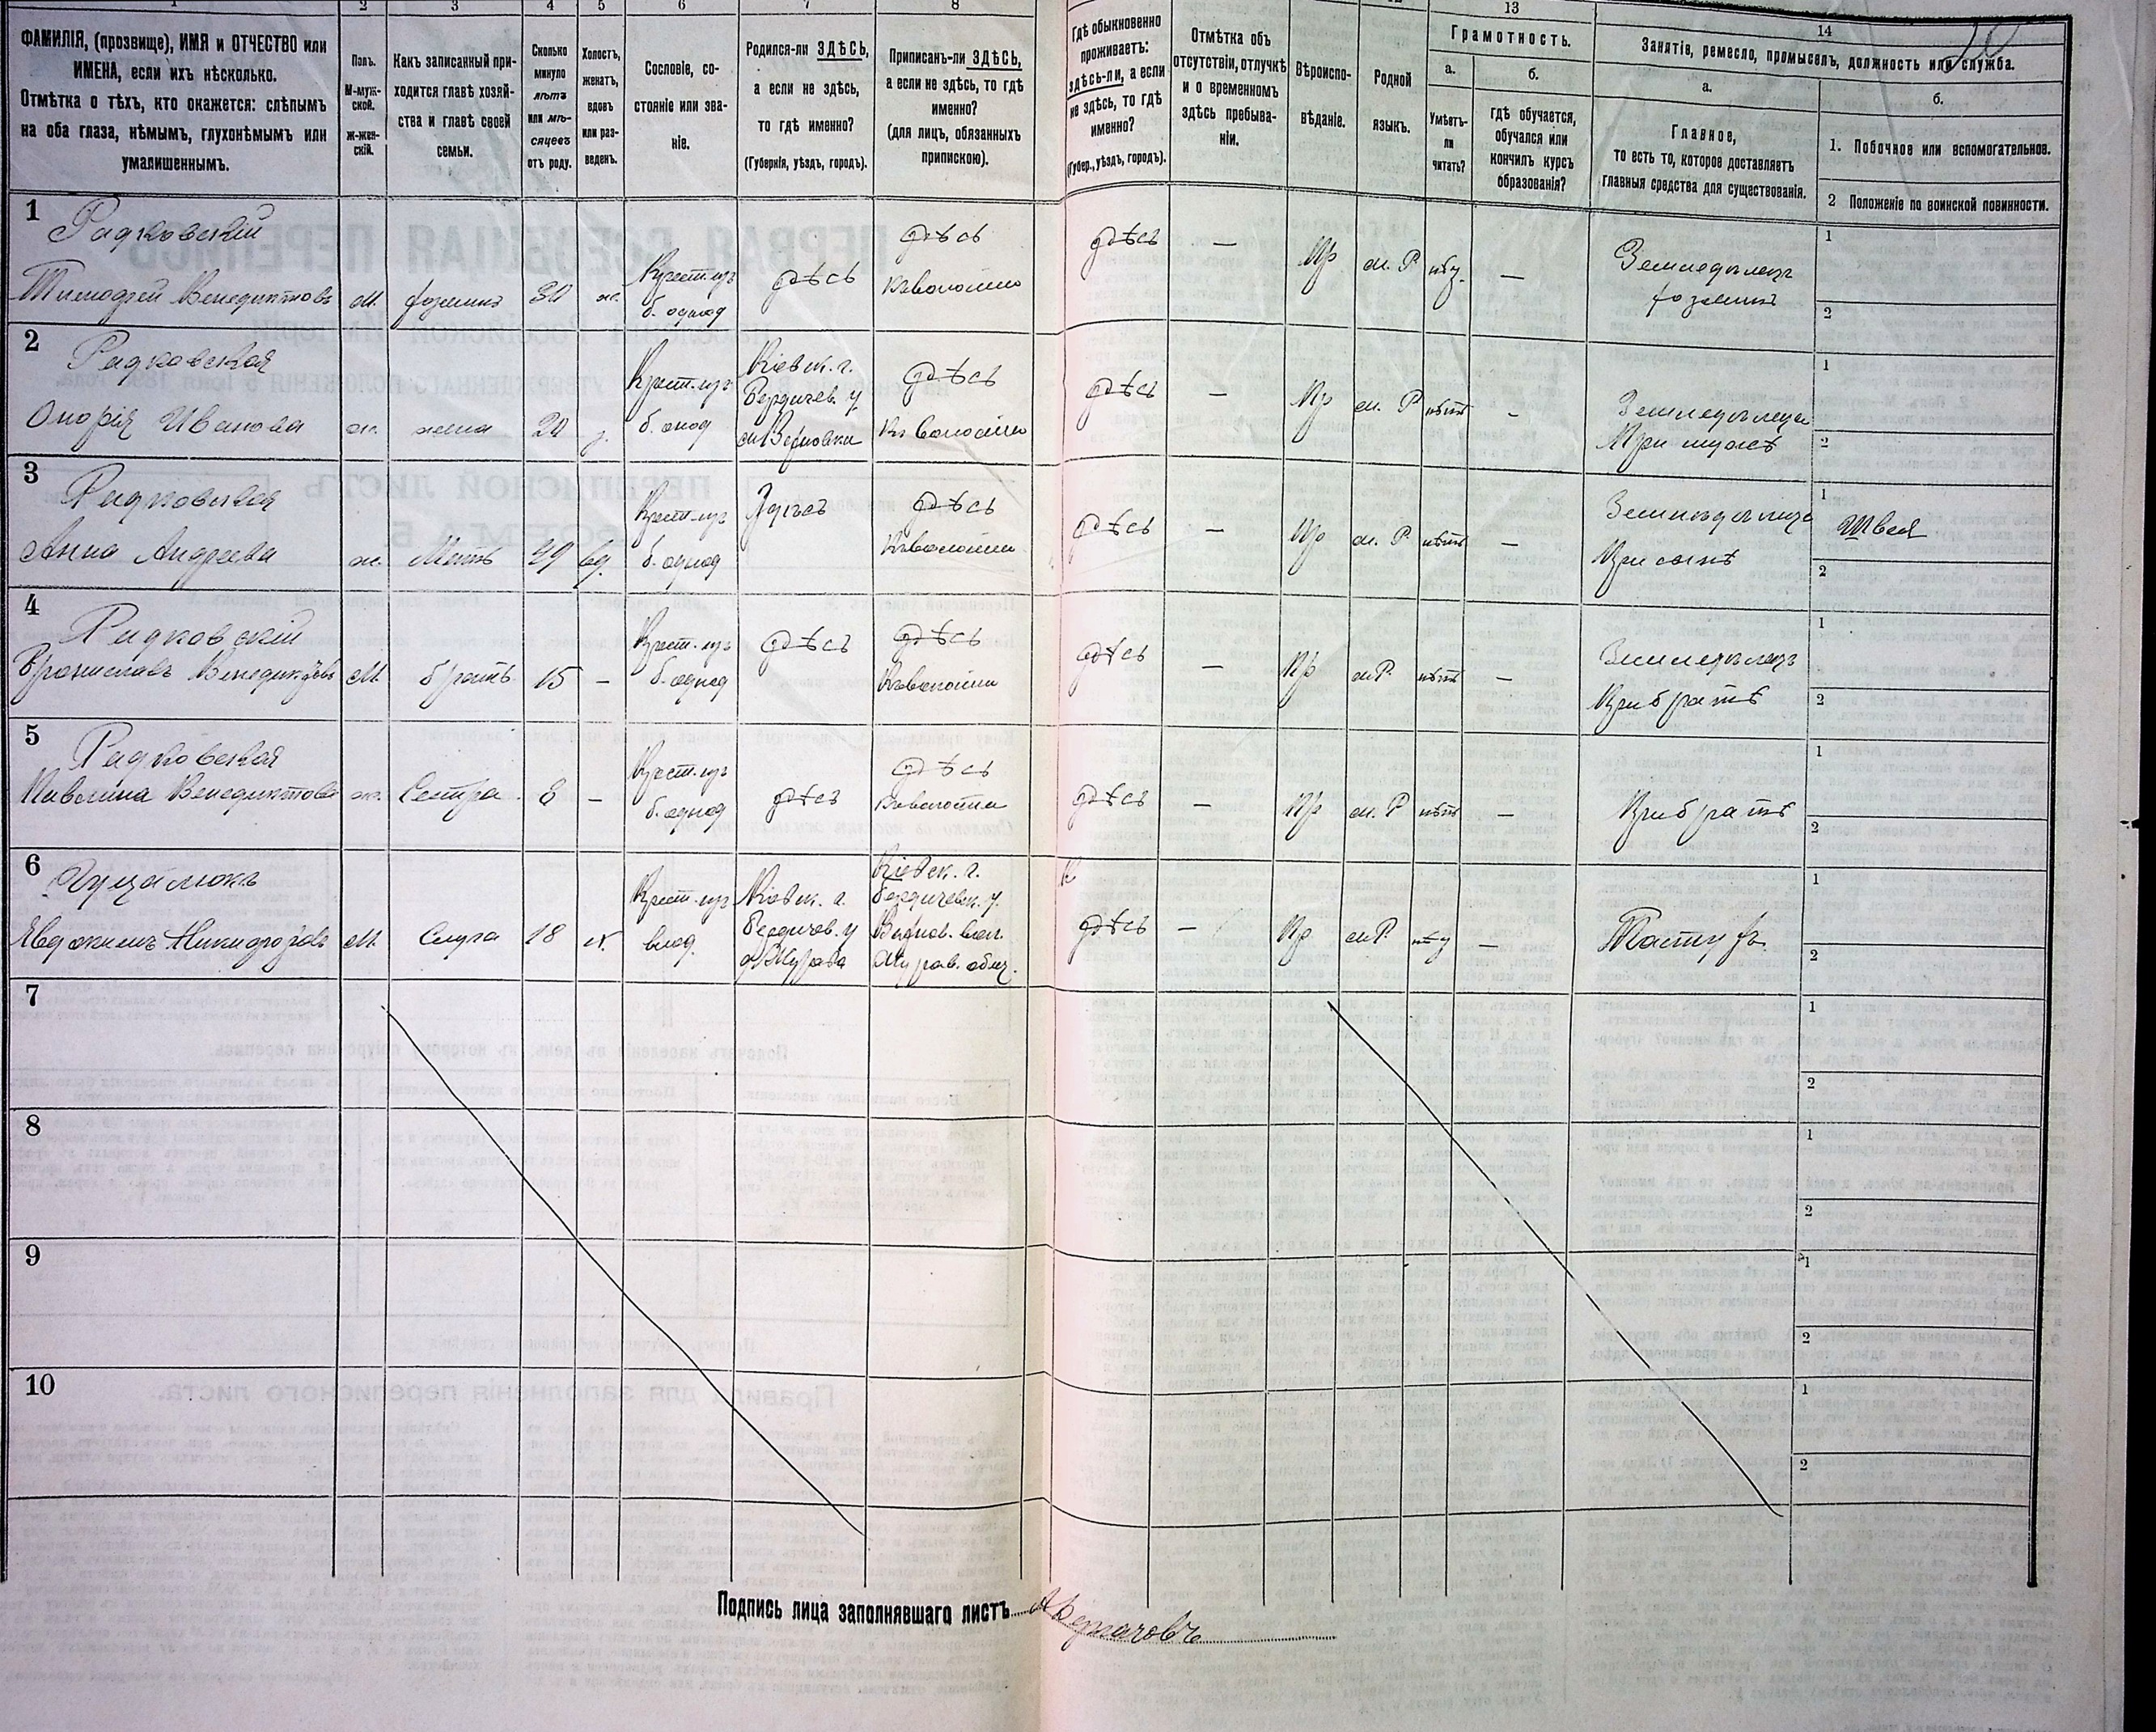 1 2 3 4 5 6 7 8 13 14
ФАМИЛІЯ, (прозвище), ИМЯ и ОТЧЕСТВО или
ИМЕНА, если ихъ нѣсколько.
Отмѣтка о тѣхъ, кто окажется: слѣпымъ
на оба глаза, нѣмымъ, глухонѣмымъ или
умалишеннымъ.
Полъ.
М-муж-
ской.
ж-жен-
скій.
Какъ записанный при-
ходится главѣ хозяй-
ства и главѣ своей
семьи.
Сколько
минуло
лѣтъ
или мѣ-
сяцевъ
отъ роду.
Холостъ,
женатъ,
вдовъ
или раз-
веденъ.
Сословіе, со-
стояніе или зва-
ніе.
Родился-ли ЗДѢСЬ,
а если не здѣсь,
то гдѣ именно?
(Губернія, уѣздъ, городъ).
Приписанъ-ли ЗДѢСЬ,
а если не здѣсь, то гдѣ
именно?
(для лицъ, обязанныхъ
припискою).
Гдѣ обыкновенно
проживаетъ:
здѣсь-ли, а если
не здѣсь, то гдѣ
именно?
(Губер., уѣздъ, городъ).
Отмѣтка объ
отсутствіи, отлучкѣ
и о временномъ
здѣсь пребыва-
ніи.
Вѣроиспо-
вѣданіе.
Родной
языкъ.
Грамотность.
а.
Умѣетъ-
ли
читать?
б.
гдѣ обучается,
обучался или
кончилъ курсъ
образованія?
Занятіе, ремесло, промыселъ, должность или служба.
а.
Главное,
то есть то, которое доставляетъ
главныя средства для существованія.
б.
1. Побочное или вспомогательное.
2 Положеніе по воинской повинности.
1
Радковскій
Тимофей Венедиктовъ м. хозяинъ 30 ж. Крест. изъ
б. однод здѣсь здѣсь
къ волости
здѣсь — Пр м. Р. —
Земледѣлецъ
хозяинъ
1
2
2
Радковская
Ивановa ж. жена 20 з. Крест. изъ
б. однод
Кіевск. г.
Бердичев. у
здѣсь
къ волости
здѣсь — Пр м. Р нѣтъ -
При мужѣ
1
2
3
Радковская
Анна Андреева ж. Мать 49 вд. Крест. изъ
б. однод
Здѣсь
здѣсь
къ волости
здѣсь — Пр м. Р нѣтъ —
При сынѣ
1 Швея
2
4
Радковскій
Брониславъ Венедиктовъ М. братъ 15 — Крест. изъ
б. однод
здѣсь
здѣсь
къ волости
здѣсь — Пр м. Р. нѣтъ —
Земледѣлецъ
При братѣ
1
2
5
Радковская
Павлина Венедиктова ж. Сестра 8 — Крест. изъ
б. однод
здѣсь
здѣсь
къ волости
здѣсь — Пр м. Р нѣтъ —
При братѣ
1
2
6
Евдокимъ Никифоровъ М. Слуга 18 х. Крест. изъ
влад.
Кіевск. г.
Бердичев. у
Кіевск. г.
Бердичевск. у.
здѣсь — Пр м. Р. —
Пастухъ
1
2
7
1
2
8
1
2
9
1
2
10
1
2
Подпись лица заполнявшаго листъ